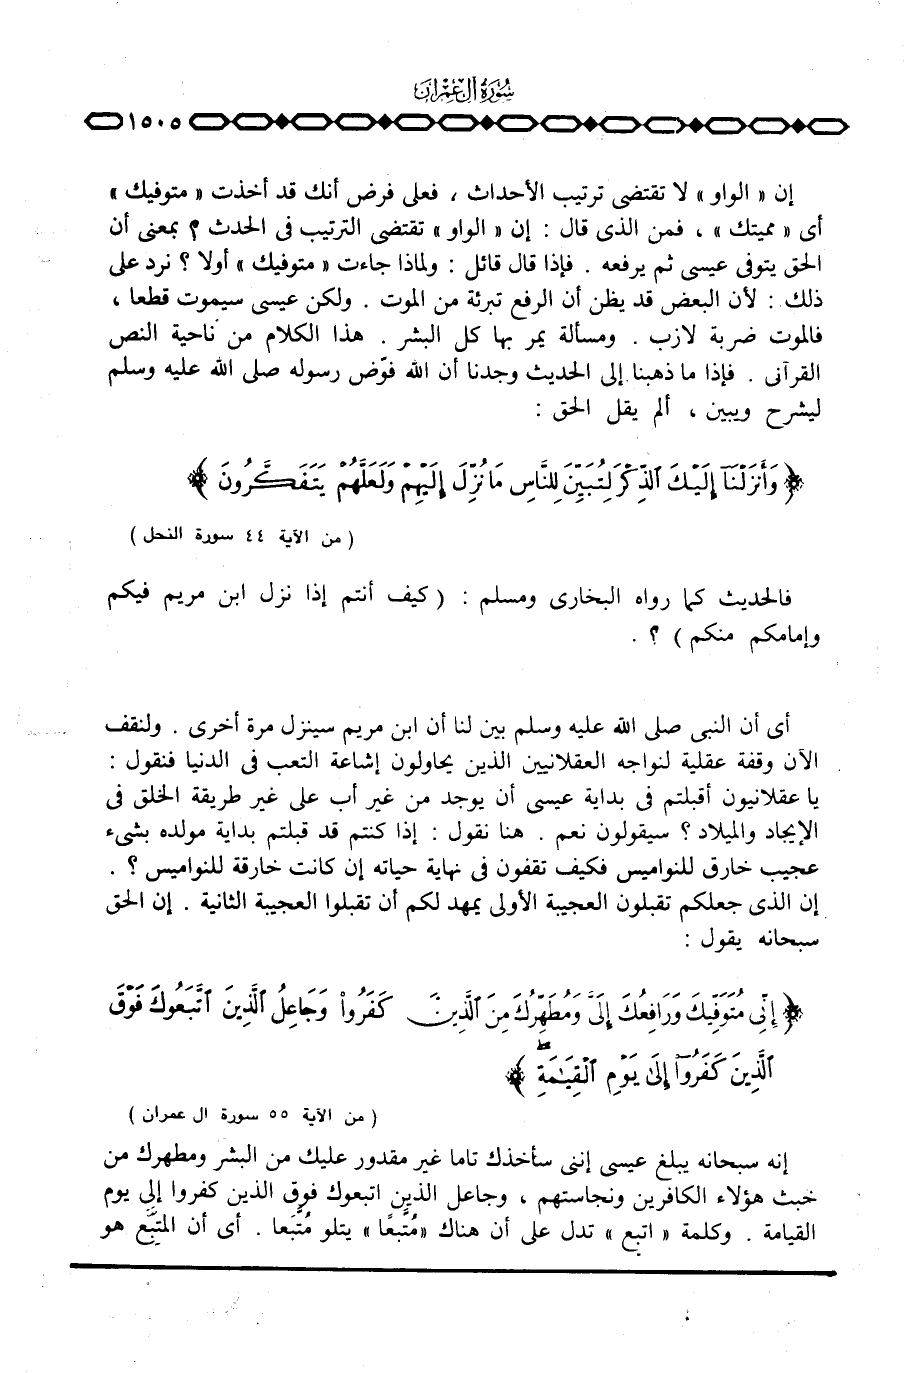 سُورَةُ آلِ عِمْرَانَ
١٥٠٥
إن « الواو » لا تقتضى ترتيب الأحداث ، فعلى فرض أنك قد أخذت « متوفيك »
أى « مميتك » ، فمن الذى قال : إن « الواو » تقتضى الترتيب فى الحدث ؟ بمعنى أن
الحق يتوفى عيسى ثم يرفعه . فإذا قال قائل : ولماذا جاءت « متوفيك » أولا ؟ نرد على
ذلك : لأن البعض قد يظن أن الرفع تبرئة من الموت . ولكن عيسى سيموت قطعا ،
فالموت ضربة لازب . ومسألة يمر بها كل البشر . هذا الكلام من ناحية النص
القرآنى . فإذا ما ذهبنا إلى الحديث وجدنا أن الله فوّض رسوله صلى الله عليه وسلم
ليشرح ويبين ، ألم يقل الحق :
﴿ وَأَنزَلْنَآ إِلَيْكَ ٱلذِّكْرَ لِتُبَيِّنَ لِلنَّاسِ مَا نُزِّلَ إِلَيْهِمْ وَلَعَلَّهُمْ يَتَفَكَّرُونَ ﴾
( من الآية ٤٤ سورة النحل )
فالحديث كما رواه البخارى ومسلم : ( كيف أنتم إذا نزل ابن مريم فيكم
وإمامكم منكم ) ؟ .
أى أن النبى صلى الله عليه وسلم بين لنا أن ابن مريم سينزل مرة أخرى . ولنقف
الآن وقفة عقلية لنواجه العقلانيين الذين يحاولون إشاعة التعب فى الدنيا فنقول :
يا عقلانيون أقبلتم فى بداية عيسى أن يوجد من غير أب على غير طريقة الخلق فى
الإيجاد والميلاد ؟ سيقولون نعم . هنا نقول : إذا كنتم قد قبلتم بداية مولده بشىء
عجيب خارق للنواميس فكيف تقفون فى نهاية حياته إن كانت خارقة للنواميس ؟ .
إن الذى جعلكم تقبلون العجيبة الأولى يمهد لكم أن تقبلوا العجيبة الثانية . إن الحق
سبحانه يقول :
﴿ إِنِّى مُتَوَفِّيكَ وَرَافِعُكَ إِلَىَّ وَمُطَهِّرُكَ مِنَ ٱلَّذِينَ كَفَرُوا۟ وَجَاعِلُ ٱلَّذِينَ ٱتَّبَعُوكَ فَوْقَ
ٱلَّذِينَ كَفَرُوٓا۟ إِلَىٰ يَوْمِ ٱلْقِيَـٰمَةِ ۖ ﴾
( من الآية ٥٥ سورة ال عمران )
إنه سبحانه يبلغ عيسى إننى سأخذك تاما غير مقدور عليك من البشر ومطهرك من
خبث هؤلاء الكافرين ونجاستهم ، وجاعل الذين اتبعوك فوق الذين كفروا إلى يوم
القيامة . وكلمة « اتبع » تدل على أن هناك «مُتَّبِعًا » يتلو مُتَّبَعا . أى أن المتَّبِع هو